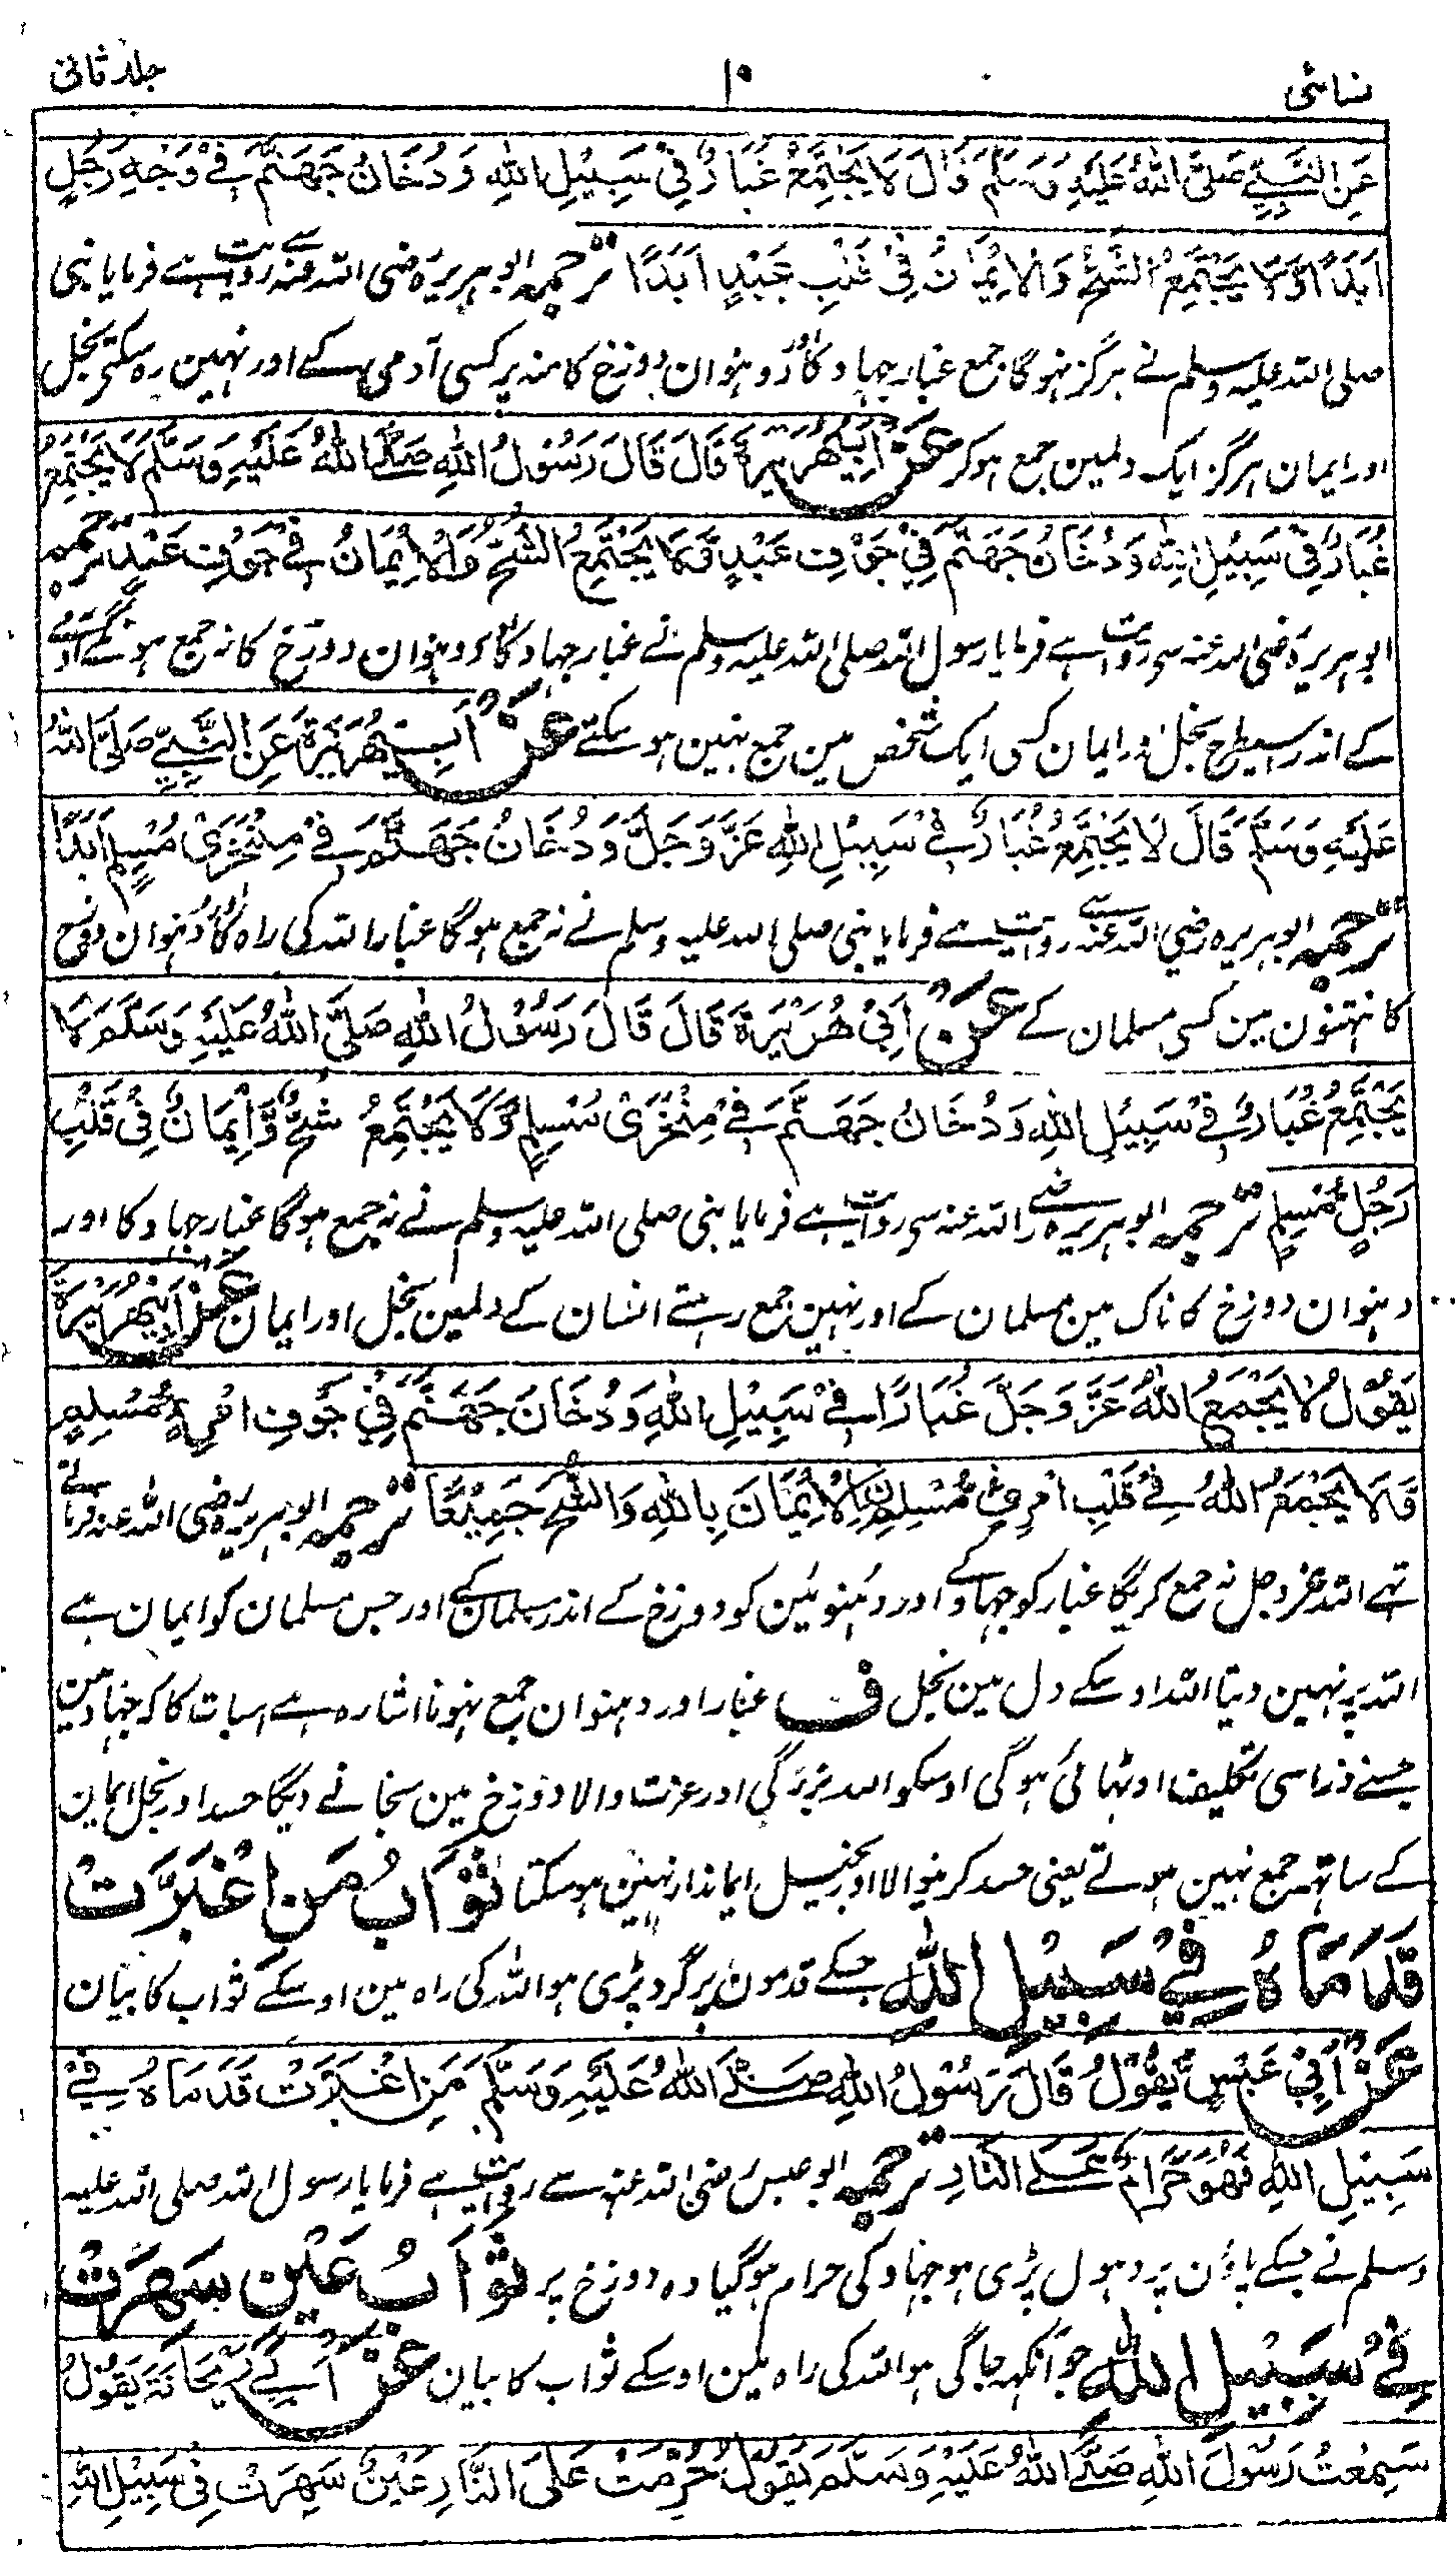 نسائی
۱۰
جلد ثانی
عَنِ النَّبِيِّ صَلَّى اللهُ عَلَيْهِ وَسَلَّمَ قَالَ لَا يَجْتَمِعُ غُبَارٌ فِي سَبِيلِ اللهِ وَدُخَانُ جَهَنَّمَ فِي وَجْهِ رَجُلٍ
اَبَدًا وَّلَا يَجْتَمِعُ الشُّحُّ وَالْاِيْمَانُ فِي قَلْبِ عَبْدٍ اَبَدًا ترجمہ ابو ہریرہ رضی اللہ عنہ سے روایت ہے فرمایا نبی
صلی اللہ علیہ وسلم نے ہرگز نہوگا جمع غبار جہاد کا اور دہنوان دوزخ کا منہ پر کسی آدمی کے اور نہین رہ سکتی بخل
اور ایمان ہرگز ایک دلمین جمع ہوکر عَنْ اَبِي هُرَيْرَةَ قَالَ قَالَ رَسُولُ اللهِ صَلَّى اللهُ عَلَيْهِ وَسَلَّمَ لَا يَجْتَمِعُ
غُبَارٌ فِي سَبِيلِ اللهِ وَدُخَانُ جَهَنَّمَ فِي جَوْفِ عَبْدٍ وَّلَا يَجْتَمِعُ الشُّحُّ وَالْاِيْمَانُ فِي جَوْفِ عَبْدٍ ترجمہ
ابو ہریرہ رضی اللہ عنہ سی روایت ہے فرمایا رسول اللہ صلی اللہ علیہ وسلم نے غبار جہاد کا اور دہنوان دوزخ کا نہ جمع ہونگے آدمی
کے اندر اسیطرح بخل اور ایمان کسی ایک شخص مین جمع نہین ہو سکتے عَنْ اَبِي هُرَيْرَةَ عَنِ النَّبِيِّ صَلَّى اللهُ
عَلَيْهِ وَسَلَّمَ قَالَ لَا يَجْتَمِعُ غُبَارٌ فِي سَبِيلِ اللهِ عَزَّ وَجَلَّ وَدُخَانُ جَهَنَّمَ فِي مِنْخَرَيْ مُسْلِمٍ اَبَدًا
ترجمہ ابو ہریرہ رضی اللہ عنہ سے روایت ہے فرمایا نبی صلی اللہ علیہ وسلم نے نہ جمع ہوگا غبار اللہ کی راہ کا اور دہنوان دوزخ
کا نہتنون مین کسی مسلمان کے عَنْ اَبِي هُرَيْرَةَ قَالَ قَالَ رَسُوْلُ اللهِ صَلَّى اللهُ عَلَيْهِ وَسَلَّمَ لَا
يَجْتَمِعُ غُبَارٌ فِي سَبِيلِ اللهِ وَدُخَانُ جَهَنَّمَ فِي مِنْخَرَيْ مُسْلِمٍ وَّلَا يَجْتَمِعُ شُحٌّ وَّاِيْمَانٌ فِي قَلْبِ
رَجُلٍ مُّسْلِمٍ ترجمہ ابو ہریرہ رضی اللہ عنہ سی روایت ہے فرمایا نبی صلی اللہ علیہ وسلم نے نہ جمع ہوگا غبار جہاد کا اور
دہنوان دوزخ کا ناک مین مسلمان کے اور نہین جمع رہتے انسان کے دلمین بخل اور ایمان عَنْ اَبِي هُرَيْرَةَ
يَقُوْلُ لَا يَجْتَمِعُ اللهُ عَزَّ وَجَلَّ غُبَارًا فِي سَبِيلِ اللهِ وَدُخَانَ جَهَنَّمَ فِي جَوْفِ امْرِئٍ مُّسْلِمٍ
وَّلَا يَجْمَعُ اللهُ فِي قَلْبِ امْرِئٍ مُّسْلِمٍ الْاِيْمَانَ بِاللهِ وَالشُّحَّ جَمِيْعًا ترجمہ ابو ہریرہ رضی اللہ عنہ فرماتے
تہے اللہ عزوجل نہ جمع کریگا غبار کو جہاد کے اور دہنوئین کو دوزخ کے اندر مسلمان کے اور جس مسلمان کو ایمان ہے
اللہ پر نہین دیتا اللہ اوسکے دل مین بخل ف غبار اور دہنوان جمع نہونا اشارہ ہے اسبات کا کہ جہاد مین
جسنے ذرا سی تکلیف اوٹہائی ہوگی اوسکو اللہ بزرگی اور عزت والا دوزخ مین نجانے دیگا حسد اور بخل ایمان
کے ساتہہ جمع نہین ہوتے یعنی حسد کرنیوالا اور بخیل ایماندار نہین ہوسکتا ثَوَابُ مَنِ اغْبَرَّتْ
قَدَمَاهُ فِي سَبِيْلِ اللهِ جسکے قدمون پر گرد پڑی ہو اللہ کی راہ مین اوسکے ثواب کا بیان
عَنْ اَبِي عَبْسٍ يَّقُوْلُ قَالَ رَسُوْلُ اللهِ صَلَّى اللهُ عَلَيْهِ وَسَلَّمَ مَنِ اغْبَرَّتْ قَدَمَاهُ فِي
سَبِيْلِ اللهِ فَهُوَ حَرَامٌ عَلَى النَّارِ ترجمہ ابو عبس رضی اللہ عنہ سے روایت ہے فرمایا رسول اللہ صلی اللہ علیہ
وسلم نے جسکے پاؤن پر دہول پڑی ہو جہاد کی حرام ہوگیا وہ دوزخ پر ثَوَابُ عَيْنٍ سَهِرَتْ
فِي سَبِيْلِ اللهِ جو آنکہہ جاگی ہو اللہ کی راہ مین اوسکے ثواب کا بیان عَنْ اَبِي رَيْحَانَةَ يَقُوْلُ
سَمِعْتُ رَسُوْلَ اللهِ صَلَّى اللهُ عَلَيْهِ وَسَلَّمَ يَقُوْلُ حُرِّمَتْ عَلَى النَّارِ عَيْنٌ سَهِرَتْ فِي سَبِيْلِ اللهِ